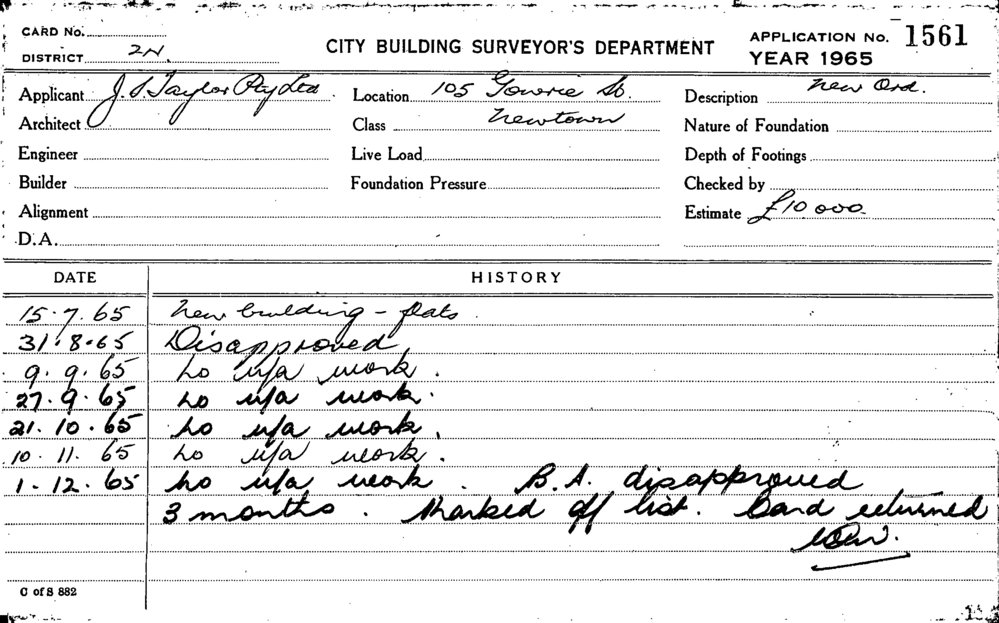 CARD No.
DISTRICT 2N
CITY BUILDING SURVEYOR'S DEPARTMENT
APPLICATION No. 1561
YEAR 1965
Applicant J. S. Taylor Pty Ltd.
Location 105 Gowrie St.
Description New Ord.
Architect
Class Newtown
Nature of Foundation
Engineer
Live Load
Depth of Footings
Builder
Foundation Pressure
Checked by
Alignment
Estimate £10 000.
D.A.
DATE HISTORY
15.7.65 New building - flats.
31.8.65 Disapproved
9.9.65 No u/a work.
27.9.65 No u/a work.
21.10.65 No u/a work.
10.11.65 No u/a work.
1.12.65 No u/a work. B.A. disapproved
3 months. Marked off list. Card returned
C of S 882